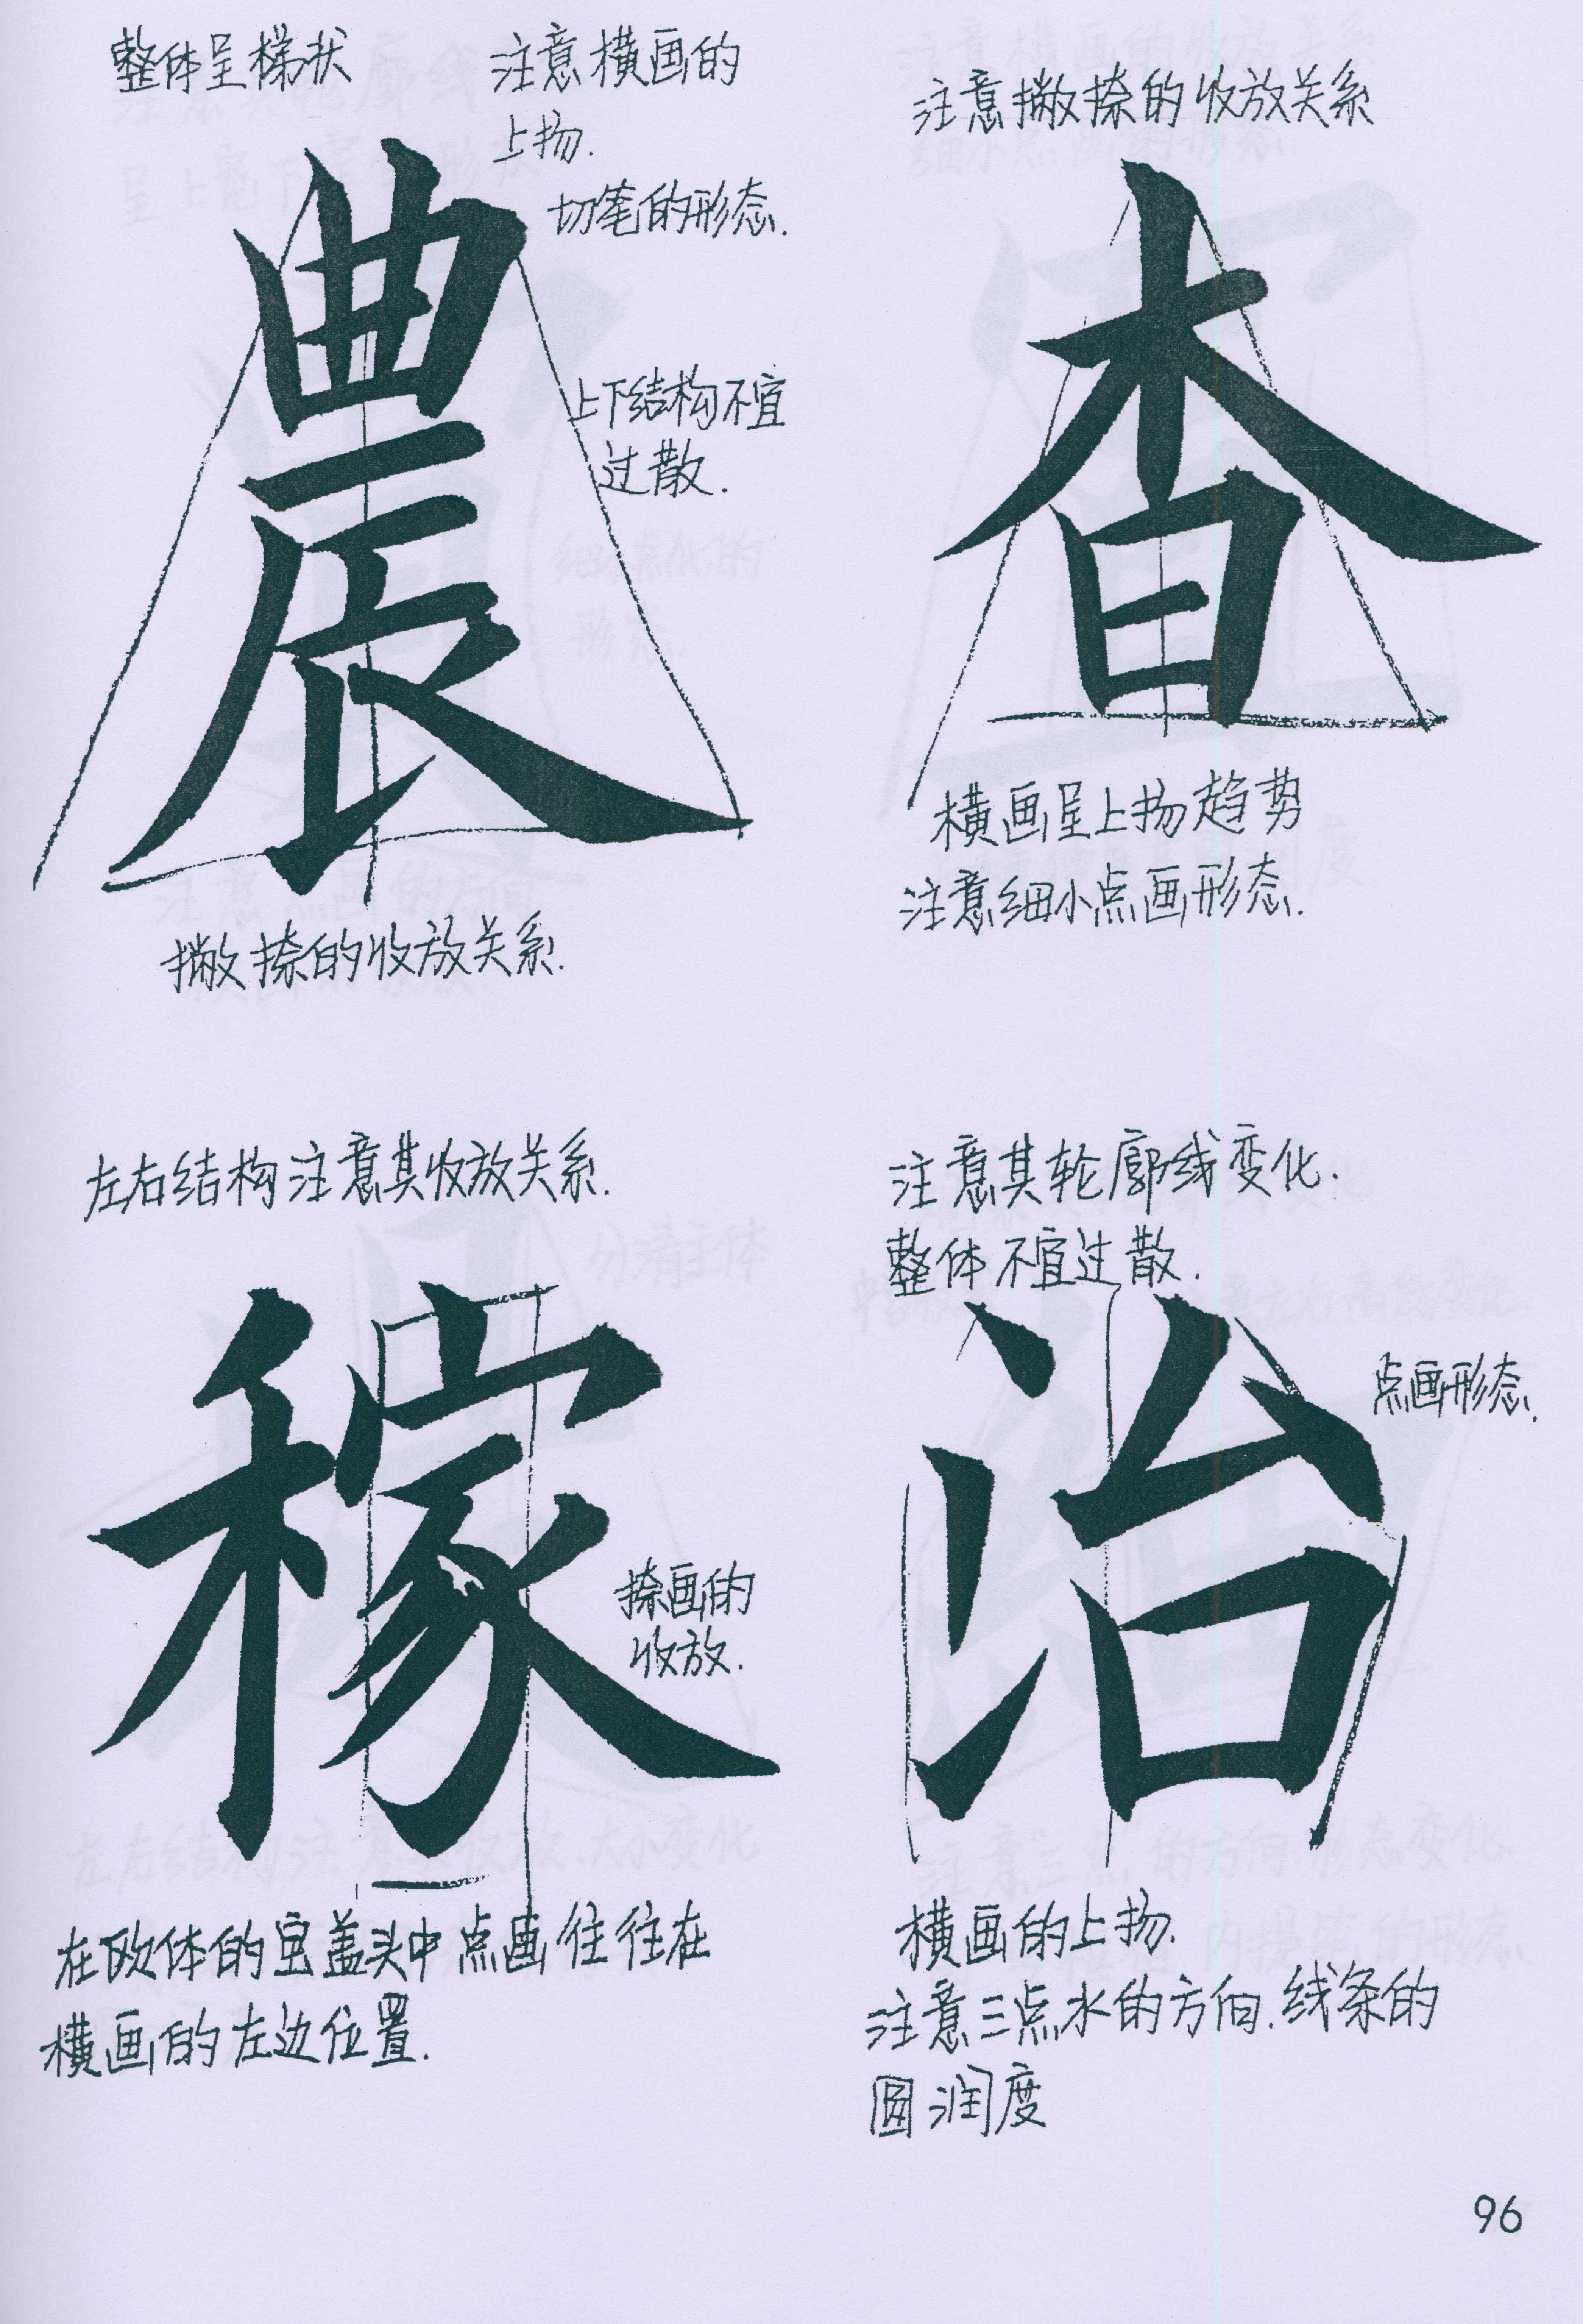 整体呈梯状
注意横画的
上扬.
切笔的形态.
農
上下结构不宜
过散.
撇捺的收放关系.
注意撇捺的收放关系
查
横画呈上扬趋势
注意细小点画形态.
左右结构注意其收放关系.
稼
捺画的
收放.
在欧体的宝盖头中点画往往在
横画的左边位置.
注意其轮廓线变化.
整体不宜过散.
治
点画形态.
横画的上扬.
注意三点水的方向.线条的
圆润度
96